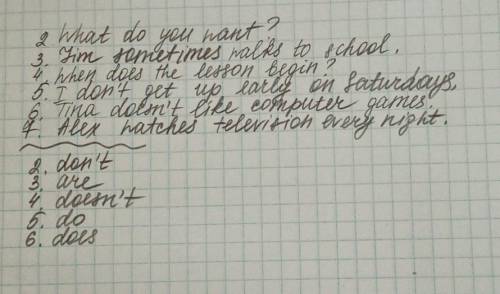 2 What do you want?
3. Jim sometimes walks to school.
4 When does the lesson begin?
5. I don't get up early on Saturdays.
6. Tina doesn't like computer games.
7. Alex watches television every night.
2. don't
3. are
4. doesn't
5. do
6. does